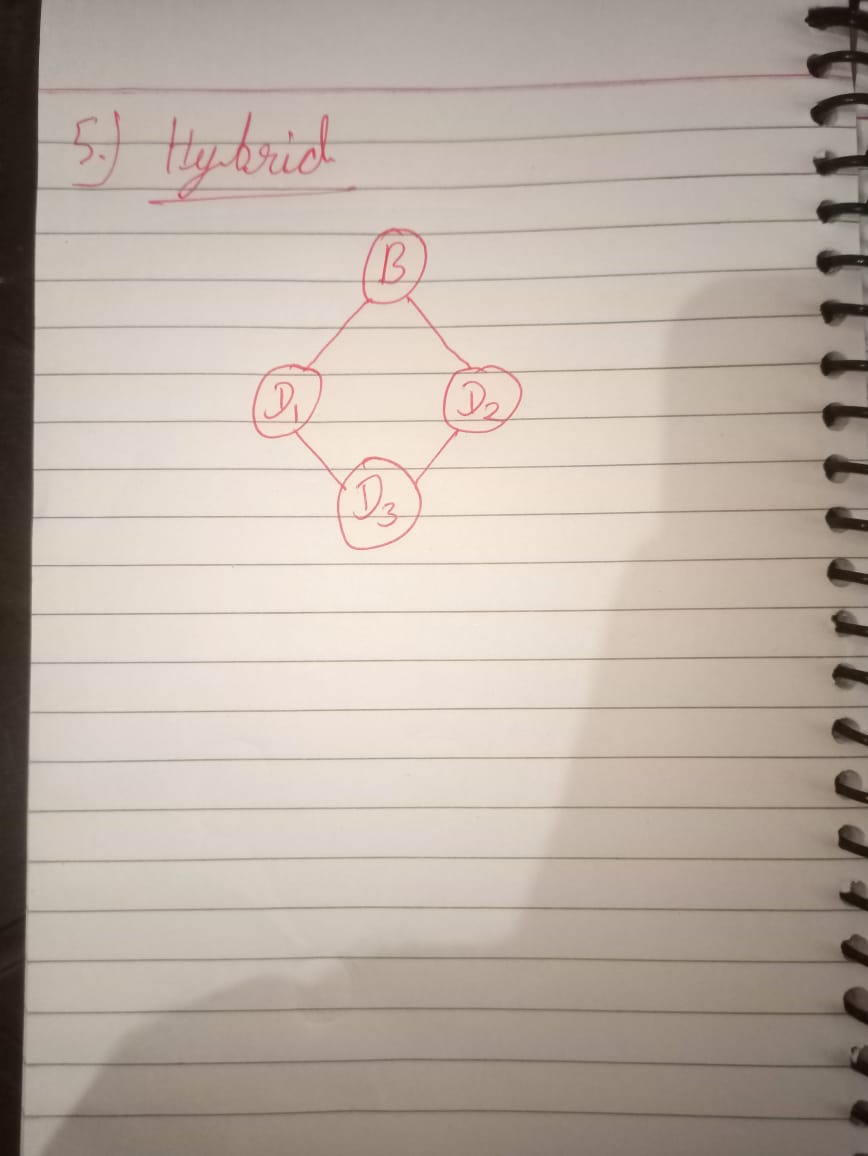 5.) Hybrid
B
D1 D2
D3